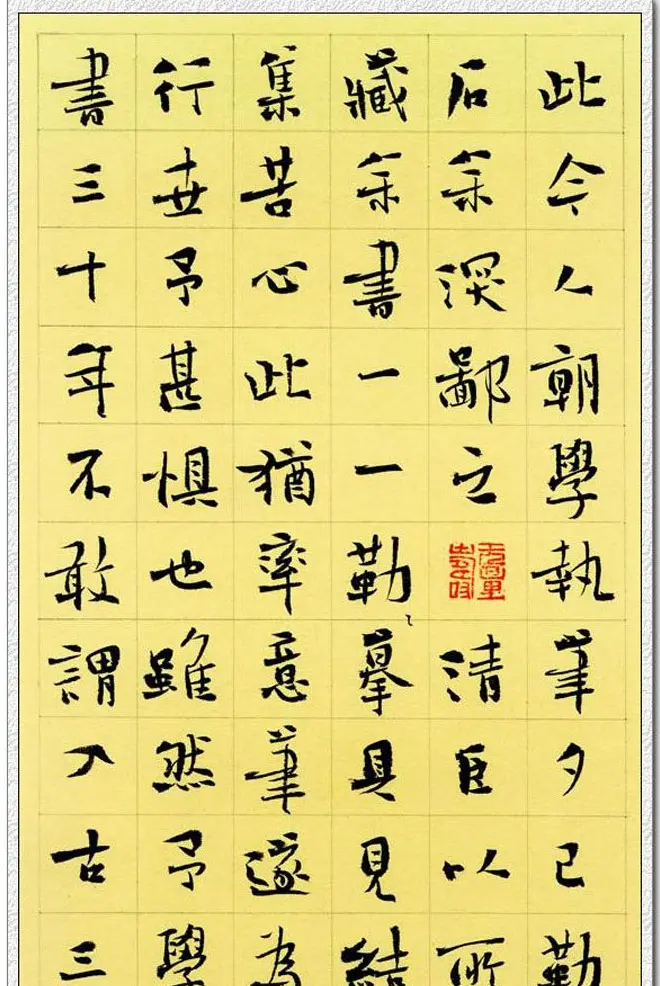 此今人朝學執筆夕已勒
石余深鄙之清臣以所
藏余書一一勒摹具見結
集苦心此猶率意筆遂為
行世予甚懼也雖然予學
書三十年不敢謂入古三